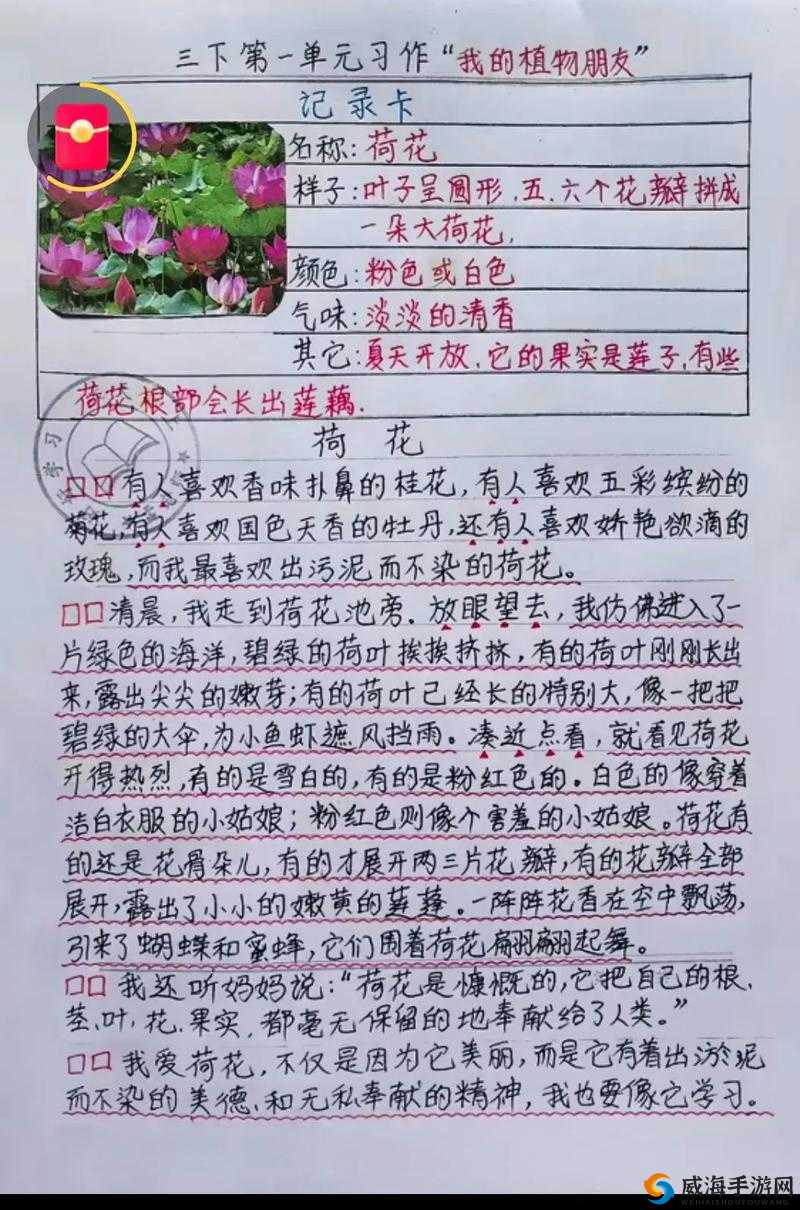 三下第一单元习作“我的植物朋友”
记录卡
名称:荷花
样子:叶子呈圆形,五、六个花瓣拼成
一朵大荷花,
颜色:粉色或白色
气味:淡淡的清香
其它:夏天开放,它的果实是莲子,有些
荷花根部会长出莲藕.
荷花
□□有人喜欢香味扑鼻的桂花,有人喜欢五彩缤纷的
菊花,有人喜欢国色天香的牡丹,还有人喜欢娇艳欲滴的
玫瑰,而我最喜欢出污泥而不染的荷花。
□□清晨,我走到荷花池旁.放眼望去,我仿佛进入了一
片绿色的海洋,碧绿的荷叶挨挨挤挤,有的荷叶刚刚长出
来,露出尖尖的嫩芽;有的荷叶已经长的特别大,像一把把
碧绿的大伞,为小鱼虾遮风挡雨。凑近点看,就看见荷花
开得热烈,有的是雪白的,有的是粉红色的。白色的像穿着
洁白衣服的小姑娘;粉红色则像个害羞的小姑娘。荷花有
的还是花骨朵儿,有的才展开两三片花瓣,有的花瓣全部
展开,露出了小小的嫩黄的莲蓬。一阵阵花香在空中飘荡,
引来了蝴蝶和蜜蜂,它们围着荷花翩翩起舞。
□□我还听妈妈说:“荷花是慷慨的,它把自己的根、
茎、叶、花、果实,都毫无保留的地奉献给了人类。”
□□我爱荷花,不仅是因为它美丽,而是它有着出淤泥
而不染的美德、和无私奉献的精神,我也要像它学习。
威海手游网
WEIHAISHOUYOUWANG